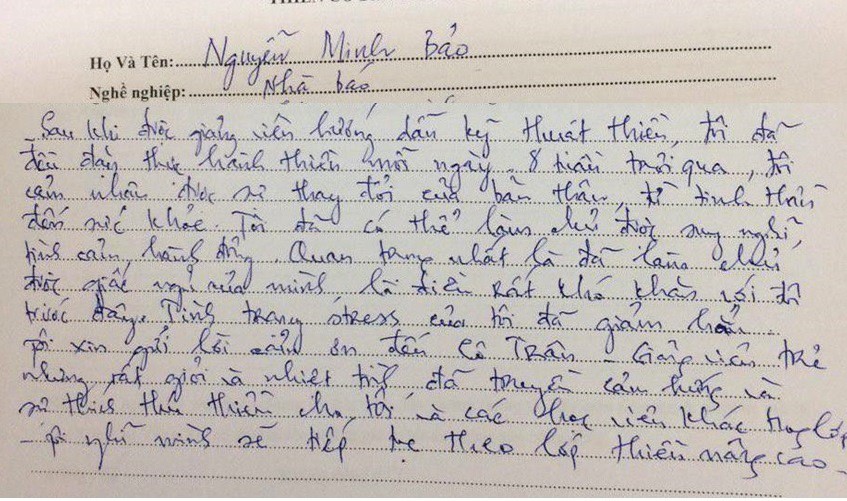 Họ Và Tên: Nguyễn Minh Bảo
Nghề nghiệp: Nhà báo
Sau khi được giảng viên hướng dẫn kỹ thuật thiền, tôi đã
đều đặn thực hành thiền mỗi ngày. 8 tuần trôi qua, tôi
cảm nhận được sự thay đổi của bản thân, từ tinh thần
đến sức khỏe. Tôi đã có thể làm chủ được suy nghĩ,
tình cảm, hành động. Quan trọng nhất là đã làm chủ
được giấc ngủ của mình là điều rất khó khăn với tôi
trước đây. Tình trạng stress của tôi đã giảm hẳn.
Tôi xin gửi lời cảm ơn đến Cô Trân - Giảng viên trẻ
nhưng rất giỏi và nhiệt tình đã truyền cảm hứng và
sự thích thú thiền cho tôi và các học viên khác trong lớp
- Tôi nghĩ mình sẽ tiếp tục theo lớp thiền nâng cao -